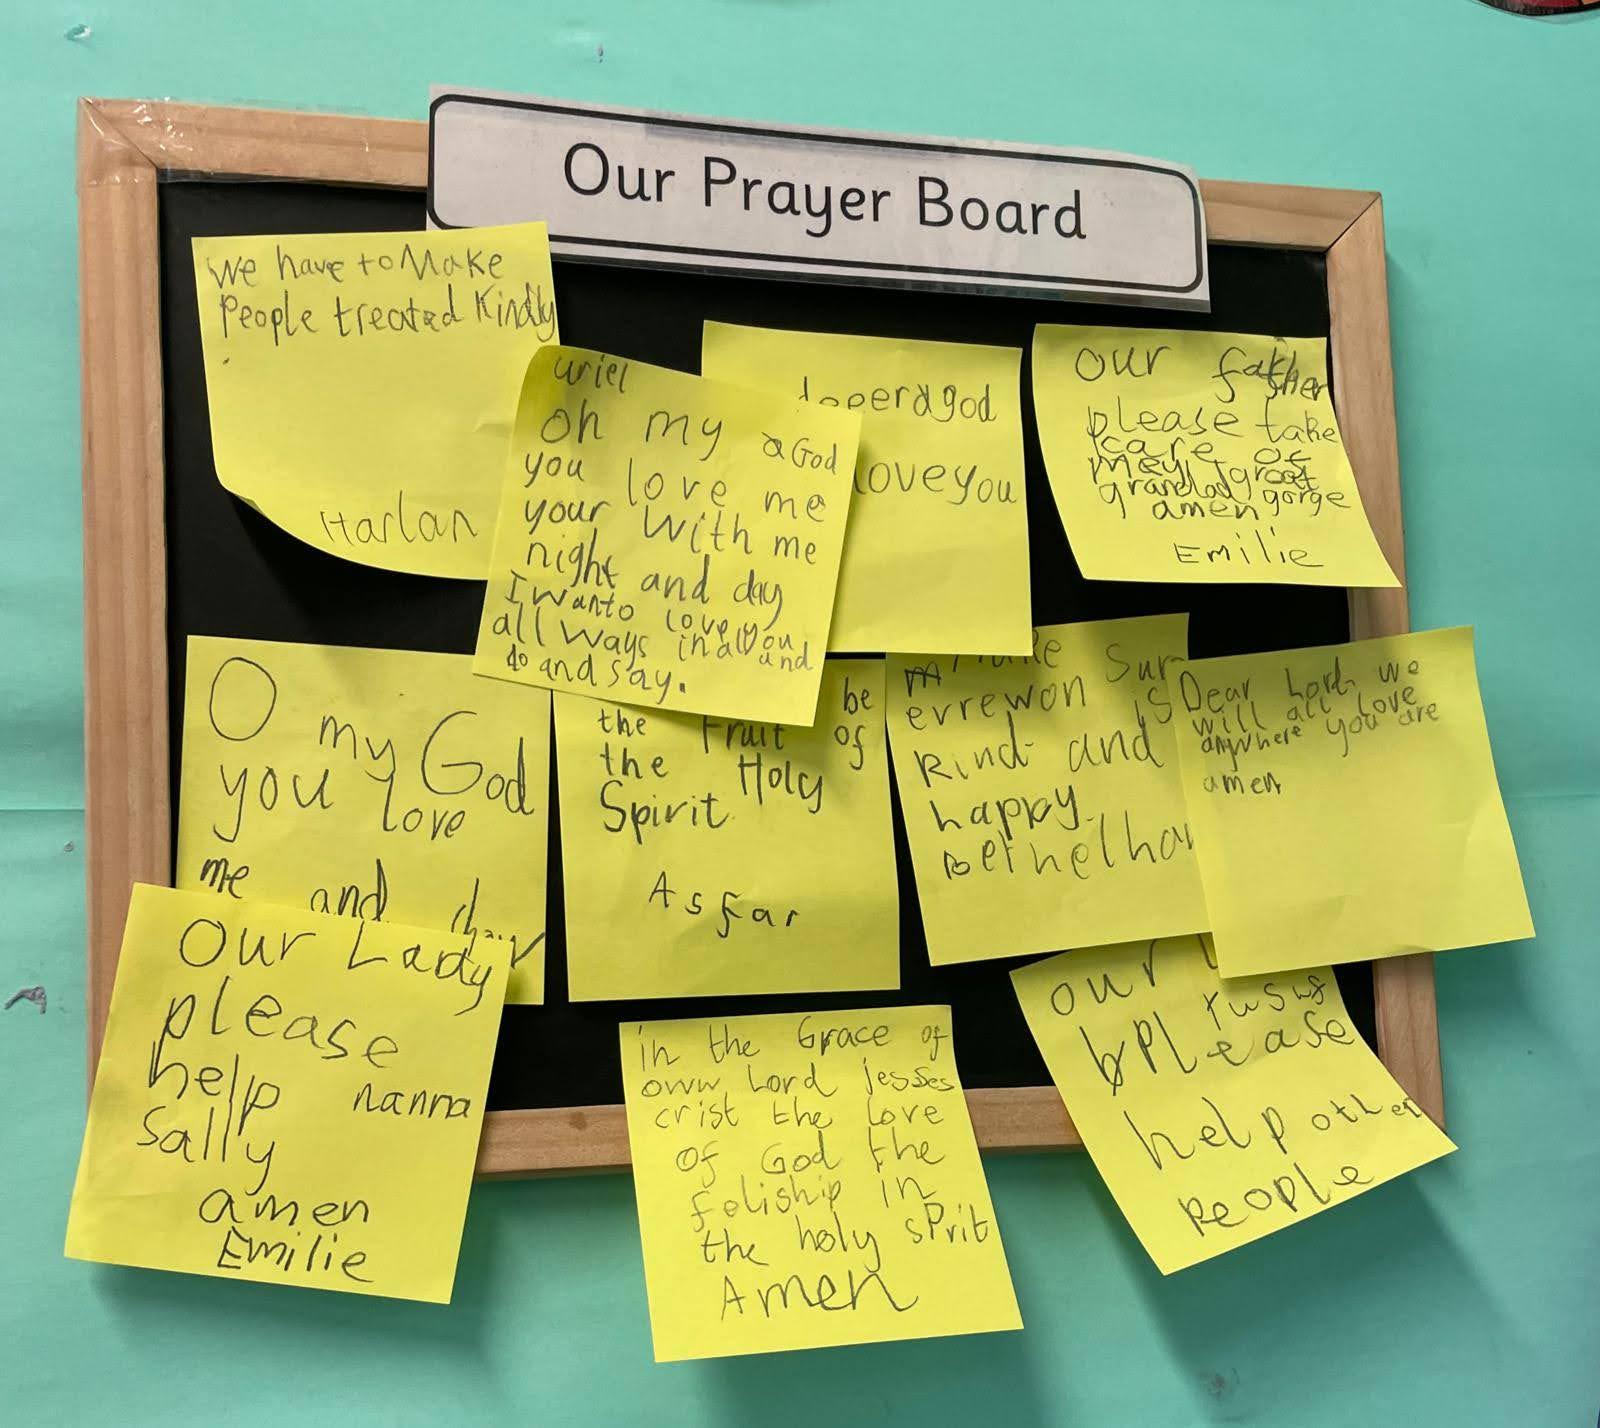 Our Prayer Board
We have to Make
People treated Kindly
Harlan
uriel
oh my a God
you love me
your with me
night and day
I wanto love you
all ways in all you
do and say. and
god
love you
our father
please take
care of
my groat
grandad gorge
amen
Emilie
O my God
you love
me and
be
the Fruit of
the Holy
Spirit
Asfar
Sur
errewon is
Kind and
happy.
Dear Lord we
will all love
anywhere you are
amen
Our Lady
please
help nanna
Sally
amen
Emilie
in the Grace of
oww Lord jesses
crist the love
of God the
feliship in
the holy sPrit
Amen
our
PLease
help other
PeoPle